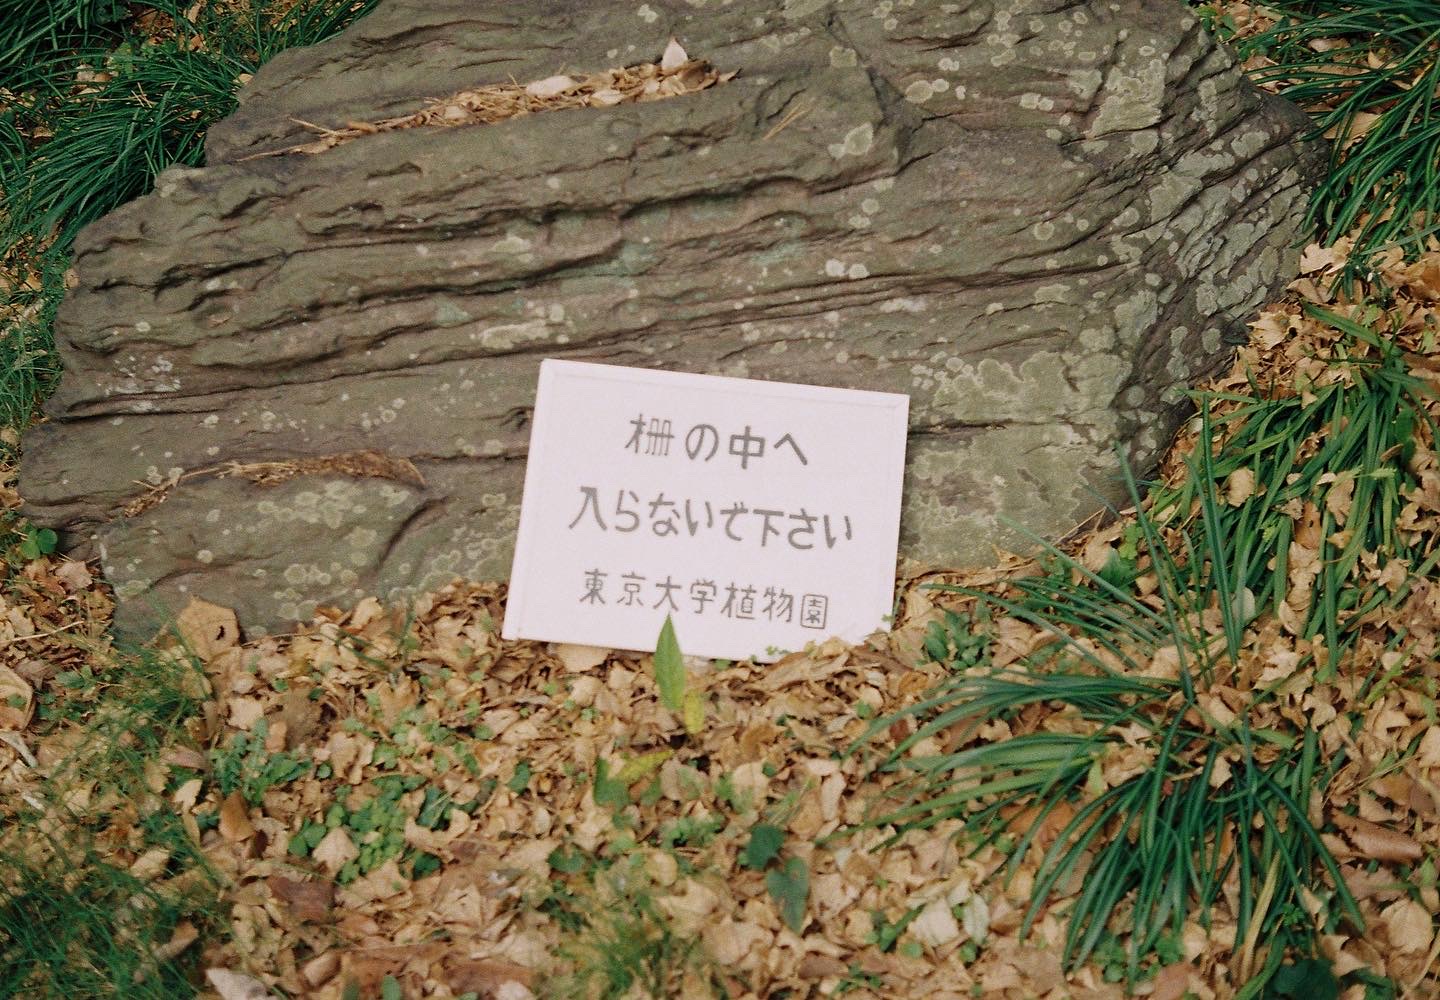 柵の中へ
入らないで下さい
東京大学植物園